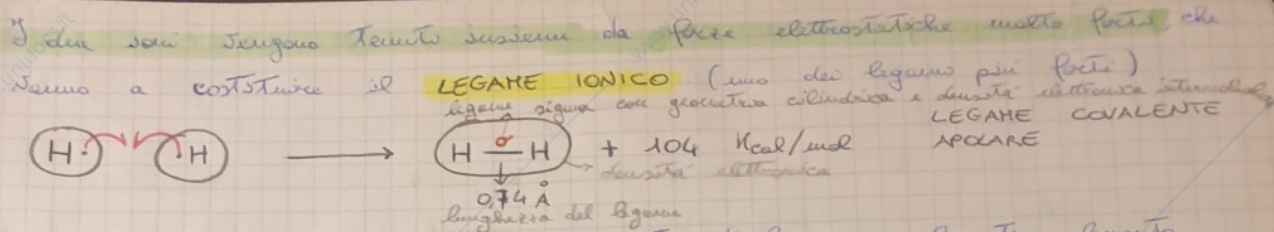 I due ioni vengono tenuti insieme da forze elettrostatiche molto forti, che
vanno a costituire il LEGAME IONICO (uno dei legami più forti)
legame sigma con geometria cilindrica e densità elettronica internucleare
LEGAME COVALENTE
H· ·H → H σ H + 104 Kcal/mol APOLARE
densità elettronica
0,74 Å
lunghezza del legame